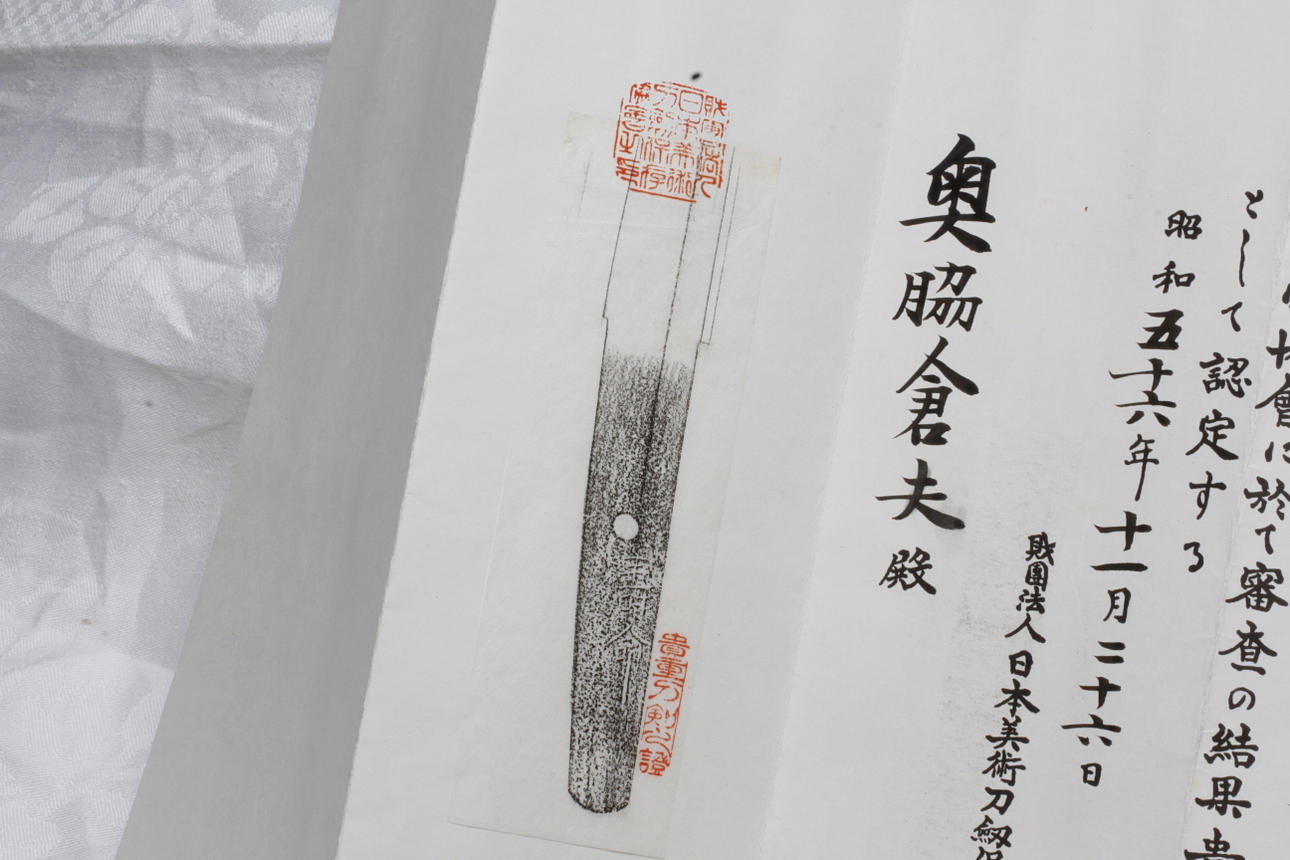 會に於て審査の結果貴
として認定する
昭和五十六年十一月二十六日
財團法人日本美術刀劒保
奥脇倉夫殿
財團法人
日本美術
刀劍保存
協會之章
貴重刀剣之證